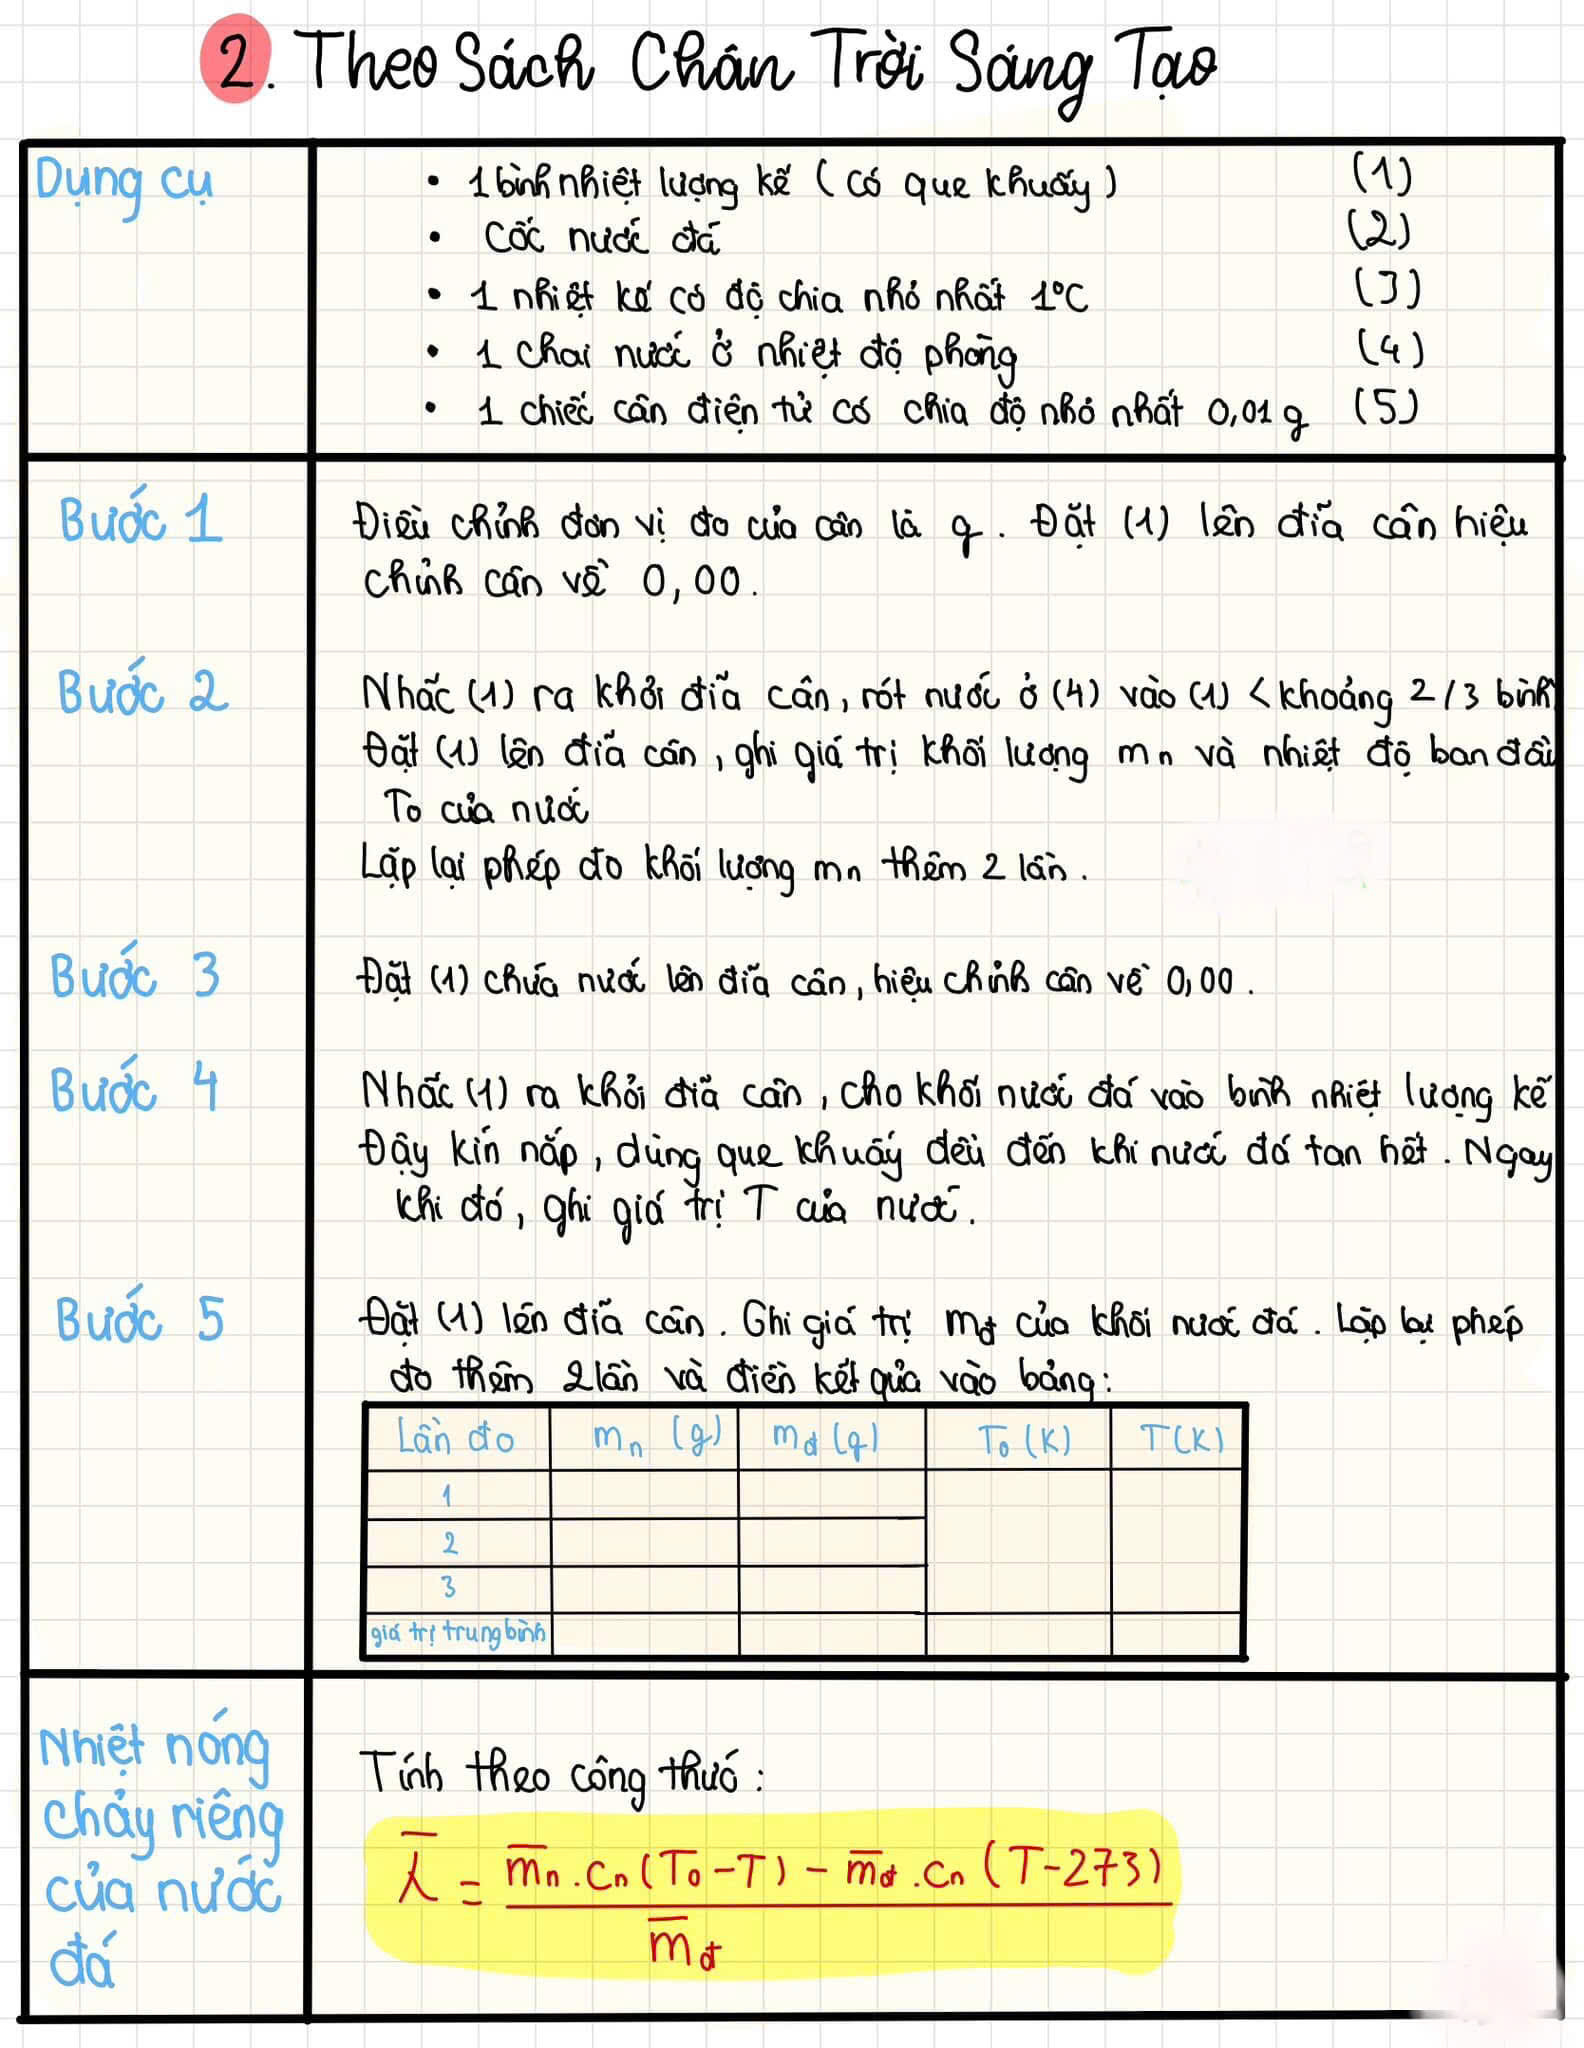 2. Theo Sách Chân Trời Sáng Tạo
Dụng cụ
• 1 bình nhiệt lượng kế (có que khuấy) (1)
• Cốc nước đá (2)
• 1 nhiệt kế có độ chia nhỏ nhất 1°C (3)
• 1 chai nước ở nhiệt độ phòng (4)
• 1 chiếc cân điện tử có chia độ nhỏ nhất 0,01g (5)
Bước 1
Điều chỉnh đơn vị đo của cân là g. Đặt (1) lên đĩa cân hiệu
chỉnh cân về 0,00.
Bước 2
Nhấc (1) ra khỏi đĩa cân, rót nước ở (4) vào (1) < khoảng 2/3 bình
Đặt (1) lên đĩa cân, ghi giá trị khối lượng mn và nhiệt độ ban đầu
To của nước
Lặp lại phép đo khối lượng mn thêm 2 lần.
Bước 3
Đặt (1) chứa nước lên đĩa cân, hiệu chỉnh cân về 0,00.
Bước 4
Nhấc (1) ra khỏi đĩa cân, cho khối nước đá vào bình nhiệt lượng kế
Đậy kín nắp, dùng que khuấy đều đến khi nước đá tan hết. Ngay
khi đó, ghi giá trị T của nước.
Bước 5
Đặt (1) lên đĩa cân. Ghi giá trị mđ của khối nước đá. Lặp lại phép
đo thêm 2 lần và điền kết quả vào bảng:
Lần đo mn (g) mđ (g) T₀ (K) T(K)
1
2
3
giá trị trung bình
Nhiệt nóng
chảy riêng
của nước
đá
Tính theo công thức:
λ̄ = m̄n.cn(T₀-T) - m̄đ.cn(T-273)
m̄đ